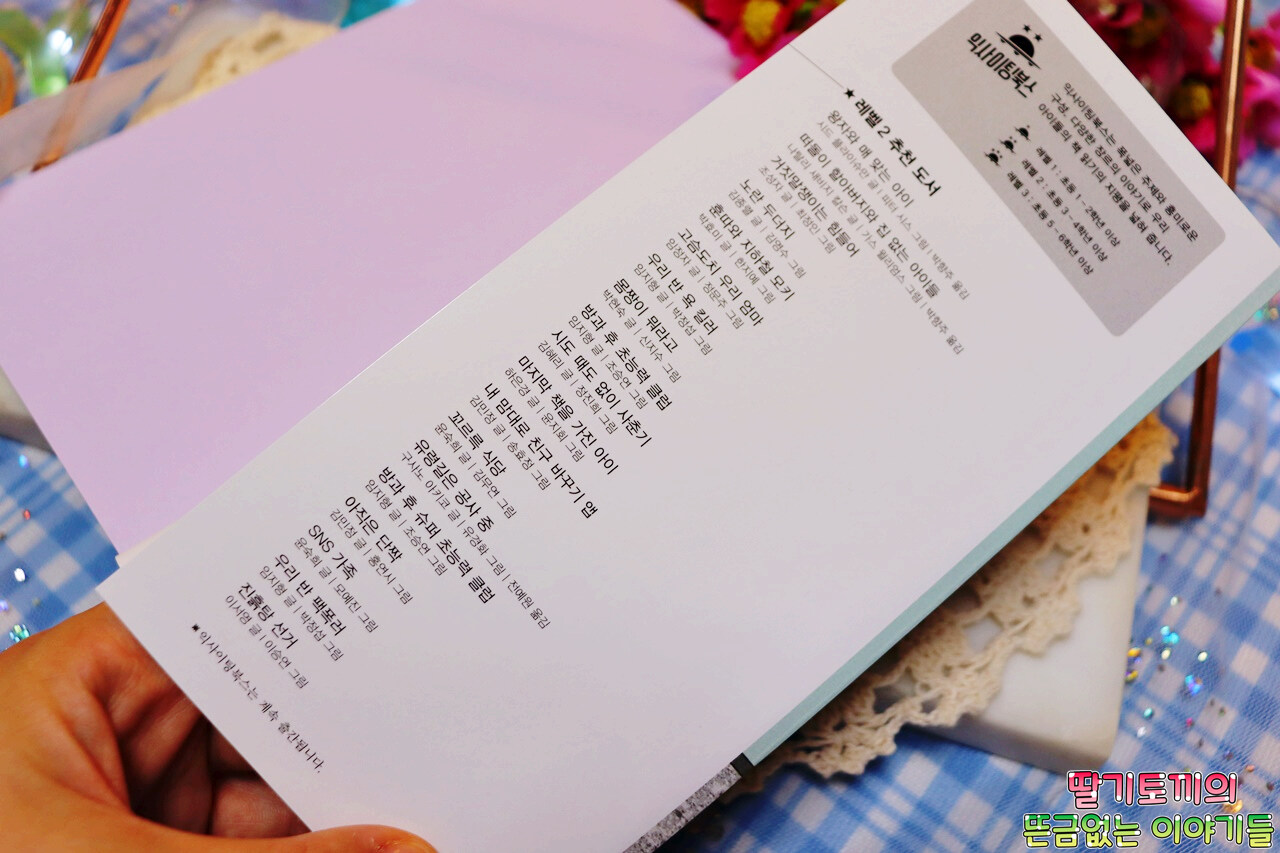 익사이팅북스
익사이팅북스는 폭넓은 주제와 흥미로운
구성, 다양한 장르의 이야기로 우리
아이들의 책 읽기의 지평을 넓혀 줍니다.
레벨 1 : 초등 1~2학년 이상
레벨 2 : 초등 3~4학년 이상
레벨 3 : 초등 5~6학년 이상
★ 레벨 2 추천 도서
왕자와 매 맞는 아이
시드 플라이슈만 글 | 피터 시스 그림 | 박향주 옮김
떠돌이 할아버지와 집 없는 아이들
나탈리 새비지 칼슨 글 | 가스 윌리엄스 그림 | 박향주 옮김
거짓말쟁이는 힘들어
조성자 글 | 최정인 그림
노란 두더지
김종렬 글 | 김영수 그림
훈따와 지하철 모키
박효미 글 | 한지예 그림
고슴도치 우리 엄마
임정자 글 | 정문주 그림
우리 반 욕 킬러
임지형 글 | 박정섭 그림
몸짱이 뭐라고
박현숙 글 | 신지수 그림
방과 후 초능력 클럽
임지형 글 | 조승연 그림
시도 때도 없이 사춘기
김혜리 글 | 정진희 그림
마지막 책을 가진 아이
하은경 글 | 윤지회 그림
내 맘대로 친구 바꾸기 앱
김민정 글 | 송효정 그림
꼬르륵 식당
윤숙희 글 | 김무연 그림
유령길은 공사 중
구사노 아키코 글 | 유경화 그림 | 전예원 옮김
방과 후 슈퍼 초능력 클럽
임지형 글 | 조승연 그림
아직은 단짝
김민정 글 | 홍연시 그림
SNS 가족
윤숙희 글 | 모예진 그림
우리 반 팩폭러
임지형 글 | 박정섭 그림
진흙탕 선거
이서영 글 | 이승연 그림
■ 익사이팅북스는 계속 출간됩니다.
딸기토끼의
뜬금없는 이야기들